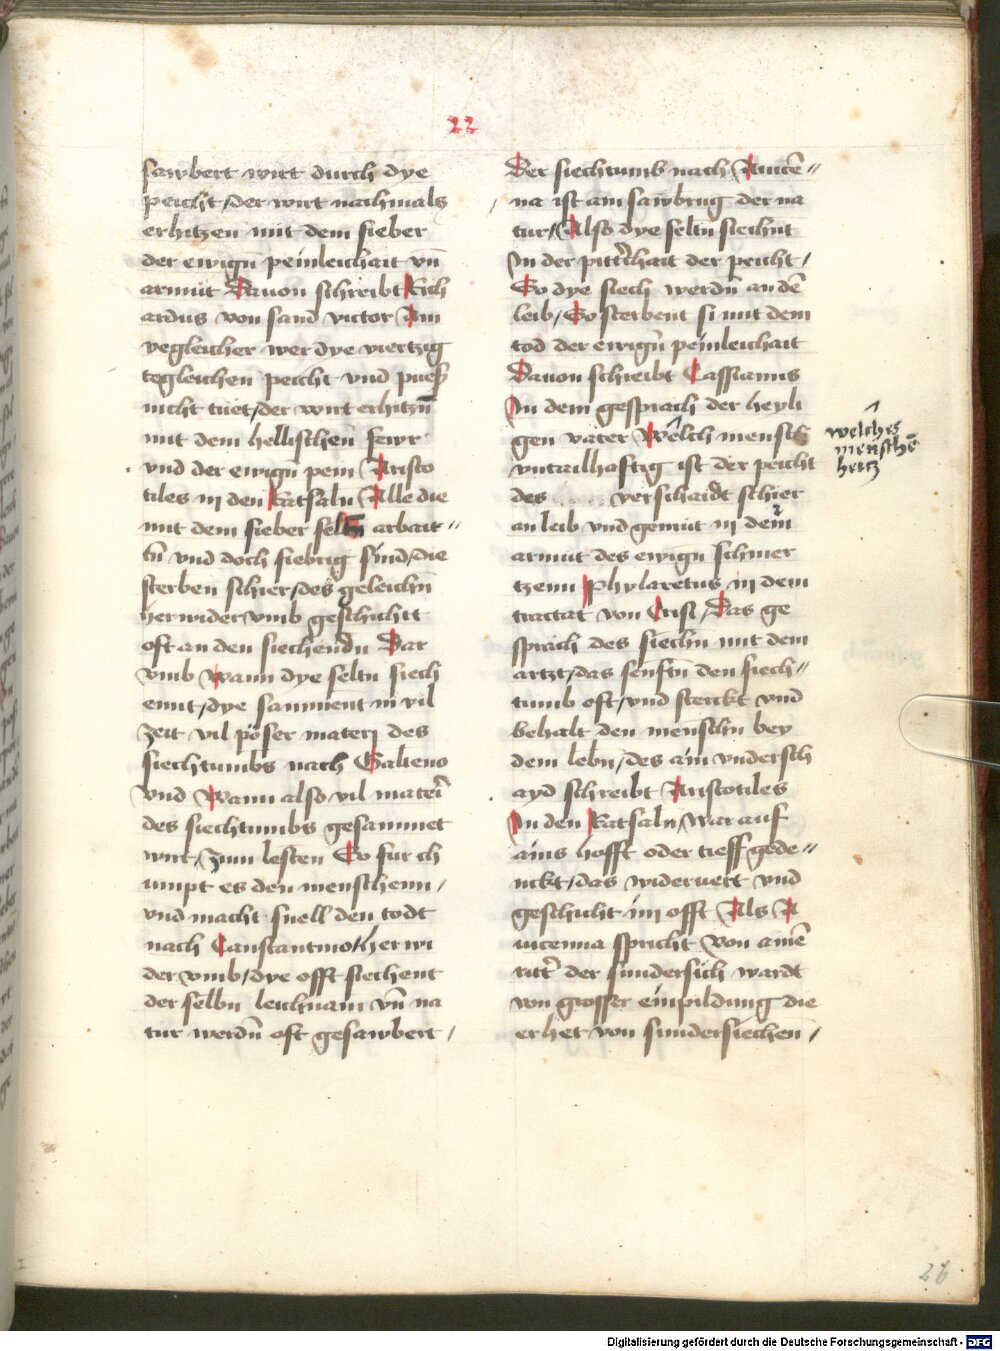 22
sawbert wirt durch dye
peicht / der wirt nachmals
erhitzen mit dem fieber
der ewign̄ peinleichait vn̄
armut Dauon schreibt Rich
ardus von sand victor Ain
yegleicher wer dye viertzig
tegleichen peicht vnd puess
nicht tuet / der wirt erhitzn̄
mit dem hellischen fewr
vnd der ewign̄ pein Aristo
tiles in den Ratsaln̄ Alle die
mit dem fieber selten arbait〃
tn̄ vnd doch fiebrig sind / die
sterben schier / des geleichn̄
herwider vmb geschicht
oft an den siechendn̄ Dar
vmb Wann dye seltn̄ siech
ent / dye samment in vil
zeit vil pöser materj des
siechtumbs nach Galieno
vnd Wann also vil materi
des siechtumbs gesammet
wirt / zum lesten So fur ch
umpt es den menschenn /
vnd macht snell den todt
nach Canstantino / herwi
der vmb / dye offt siechent
der selbn̄ leichnam vn̄ na
tur werdn̄ oft gesawbert /
Der siechtumb nach Auicē〃
na ist ain sawbrug der na
tur / Also dye seltn̄ siechnt
In der pittˀchait der peicht /
So dye siech werdn̄ an dē
leib / So sterbent si mit dem
tod der ewign̄ peinleichait
Dauon schreibt Cassianus
In dem gesprach der heyli
gen vater Welch mensch
vntailhaftig ist der peicht
des verschaidt schier
an leib vnd gemut in dem
armut des ewign̄ schmer
tzenn phylaretus in dem
tractat von Crist / Das ge
sprach des siechn̄ mit dem
artzt / das senftn̄ den siech〃
tumb oft / vnd sterckt vnd
behalt den menschn̄ bey
dem lebn̄ / des ain vndersch
ayd schreibt Aristotiles
In den Ratsaln̄ / War auf
ains hofft oder tieff gede〃
nckt / das widervert vnd
geschicht im offt Als A
uicenna spricht von ainē
rittˀ der sundersich wardt
von grosser einpildung die
er het von sundersiechen /
welches
menschē
hertz
26
Digitalisierung gefördert durch die Deutsche Forschungsgemeinschaft - DFG